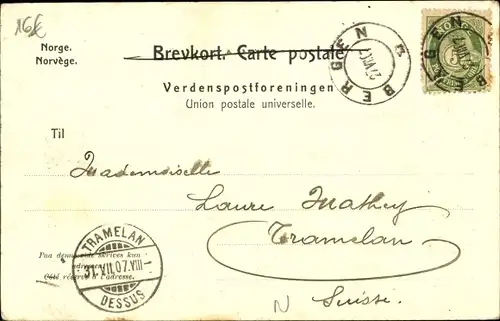 16€
Norge.
Norvège.
Brevkort. Carte postale
Verdenspostforeningen
Union postale universelle.
BERGEN
BERGEN
5
Til
Mademoiselle
Laure Mathey
Tramelan
Suisse.
Paa denne side skrives kun
adressen.
Côté réservé à l'adresse.
TRAMELAN
31.VII.07.VIII
DESSUS
N